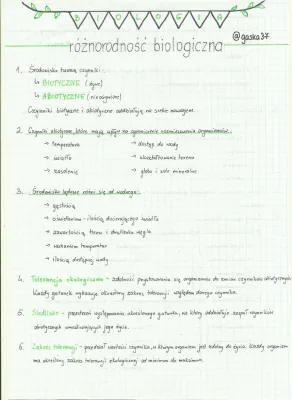 BIOLOGIA
@gaska37
różnorodność biologiczna
1. Środowisko tworzą czynniki:
↳ BIOTYCZNE (żywe)
↳ ABIOTYCZNE (nieożywione)
Czynniki biotyczne i abiotyczne oddziałują na siebie nawzajem.
2. Czynniki abiotyczne, które mają wpływ na ograniczenie rozmieszczenia organizmów:
→ temperatura → dostęp do wody
→ światło → ukształtowanie terenu
→ zasolenie → gleba i sole mineralne
3. Środowisko lądowe różni się od wodnego:
→ gęstością
→ oświetleniem - ilością docierającego światła
→ zawartością tlenu i dwutlenku węgla
→ wahaniem temperatur
→ ilością dostępnej wody
4. Tolerancja ekologiczna - zdolność przystosowania się organizmów do zmian czynników abiotycznych.
Każdy gatunek wykazuje określony zakres tolerancji względem danego czynnika.
5. Siedlisko - przestrzeń występowania określonego gatunku, na którą oddziałuje zespół czynników
abiotycznych umożliwiających jego życie.
6. Zakres tolerancji - przedział wartości czynnika, w którym organizm jest zdolny do życia. Każdy organizm
ma określony zakres tolerancji ekologicznej od minimum do maksimum.